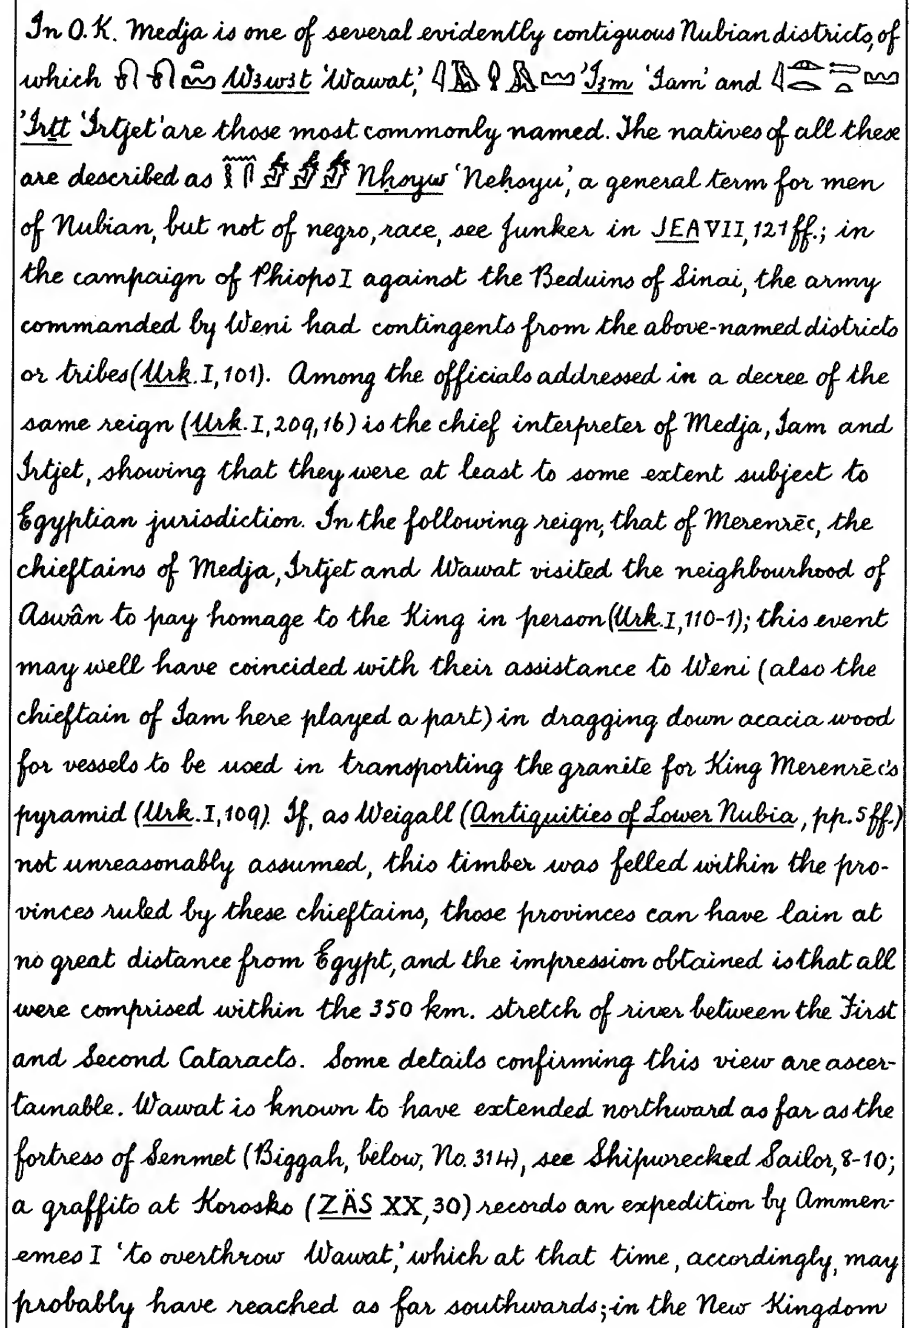 In O.K. Medja is one of several evidently contiguous Nubian districts, of
which W3w3t 'Wawat', 'I3m 'Iam' and
'Irṯt 'Irtjet' are those most commonly named. The natives of all these
are described as Nḥsyw 'Neḥsyu', a general term for men
of Nubian, but not of negro, race, see Junker in JEA VII, 121 ff.; in
the campaign of Phiops I against the Beduins of Sinai, the army
commanded by Weni had contingents from the above-named districts
or tribes (Urk. I, 101). Among the officials addressed in a decree of the
same reign (Urk. I, 209, 16) is the chief interpreter of Medja, Iam and
Irtjet, showing that they were at least to some extent subject to
Egyptian jurisdiction. In the following reign, that of Merenrēc, the
chieftains of Medja, Irtjet and Wawat visited the neighbourhood of
Aswân to pay homage to the King in person (Urk. I, 110-1); this event
may well have coincided with their assistance to Weni (also the
chieftain of Iam here played a part) in dragging down acacia wood
for vessels to be used in transporting the granite for King Merenrēc's
pyramid (Urk. I, 109). If, as Weigall (Antiquities of Lower Nubia, pp. 5 ff.)
not unreasonably assumed, this timber was felled within the pro-
vinces ruled by these chieftains, those provinces can have lain at
no great distance from Egypt, and the impression obtained is that all
were comprised within the 350 km. stretch of river between the First
and Second Cataracts. Some details confirming this view are ascer-
tainable. Wawat is known to have extended northward as far as the
fortress of Senmet (Biggah, below, No. 314), see Shipwrecked Sailor, 8-10;
a graffito at Korosko (ZÄS XX, 30) records an expedition by Ammen-
emes I 'to overthrow Wawat', which at that time, accordingly, may
probably have reached as far southwards; in the New Kingdom